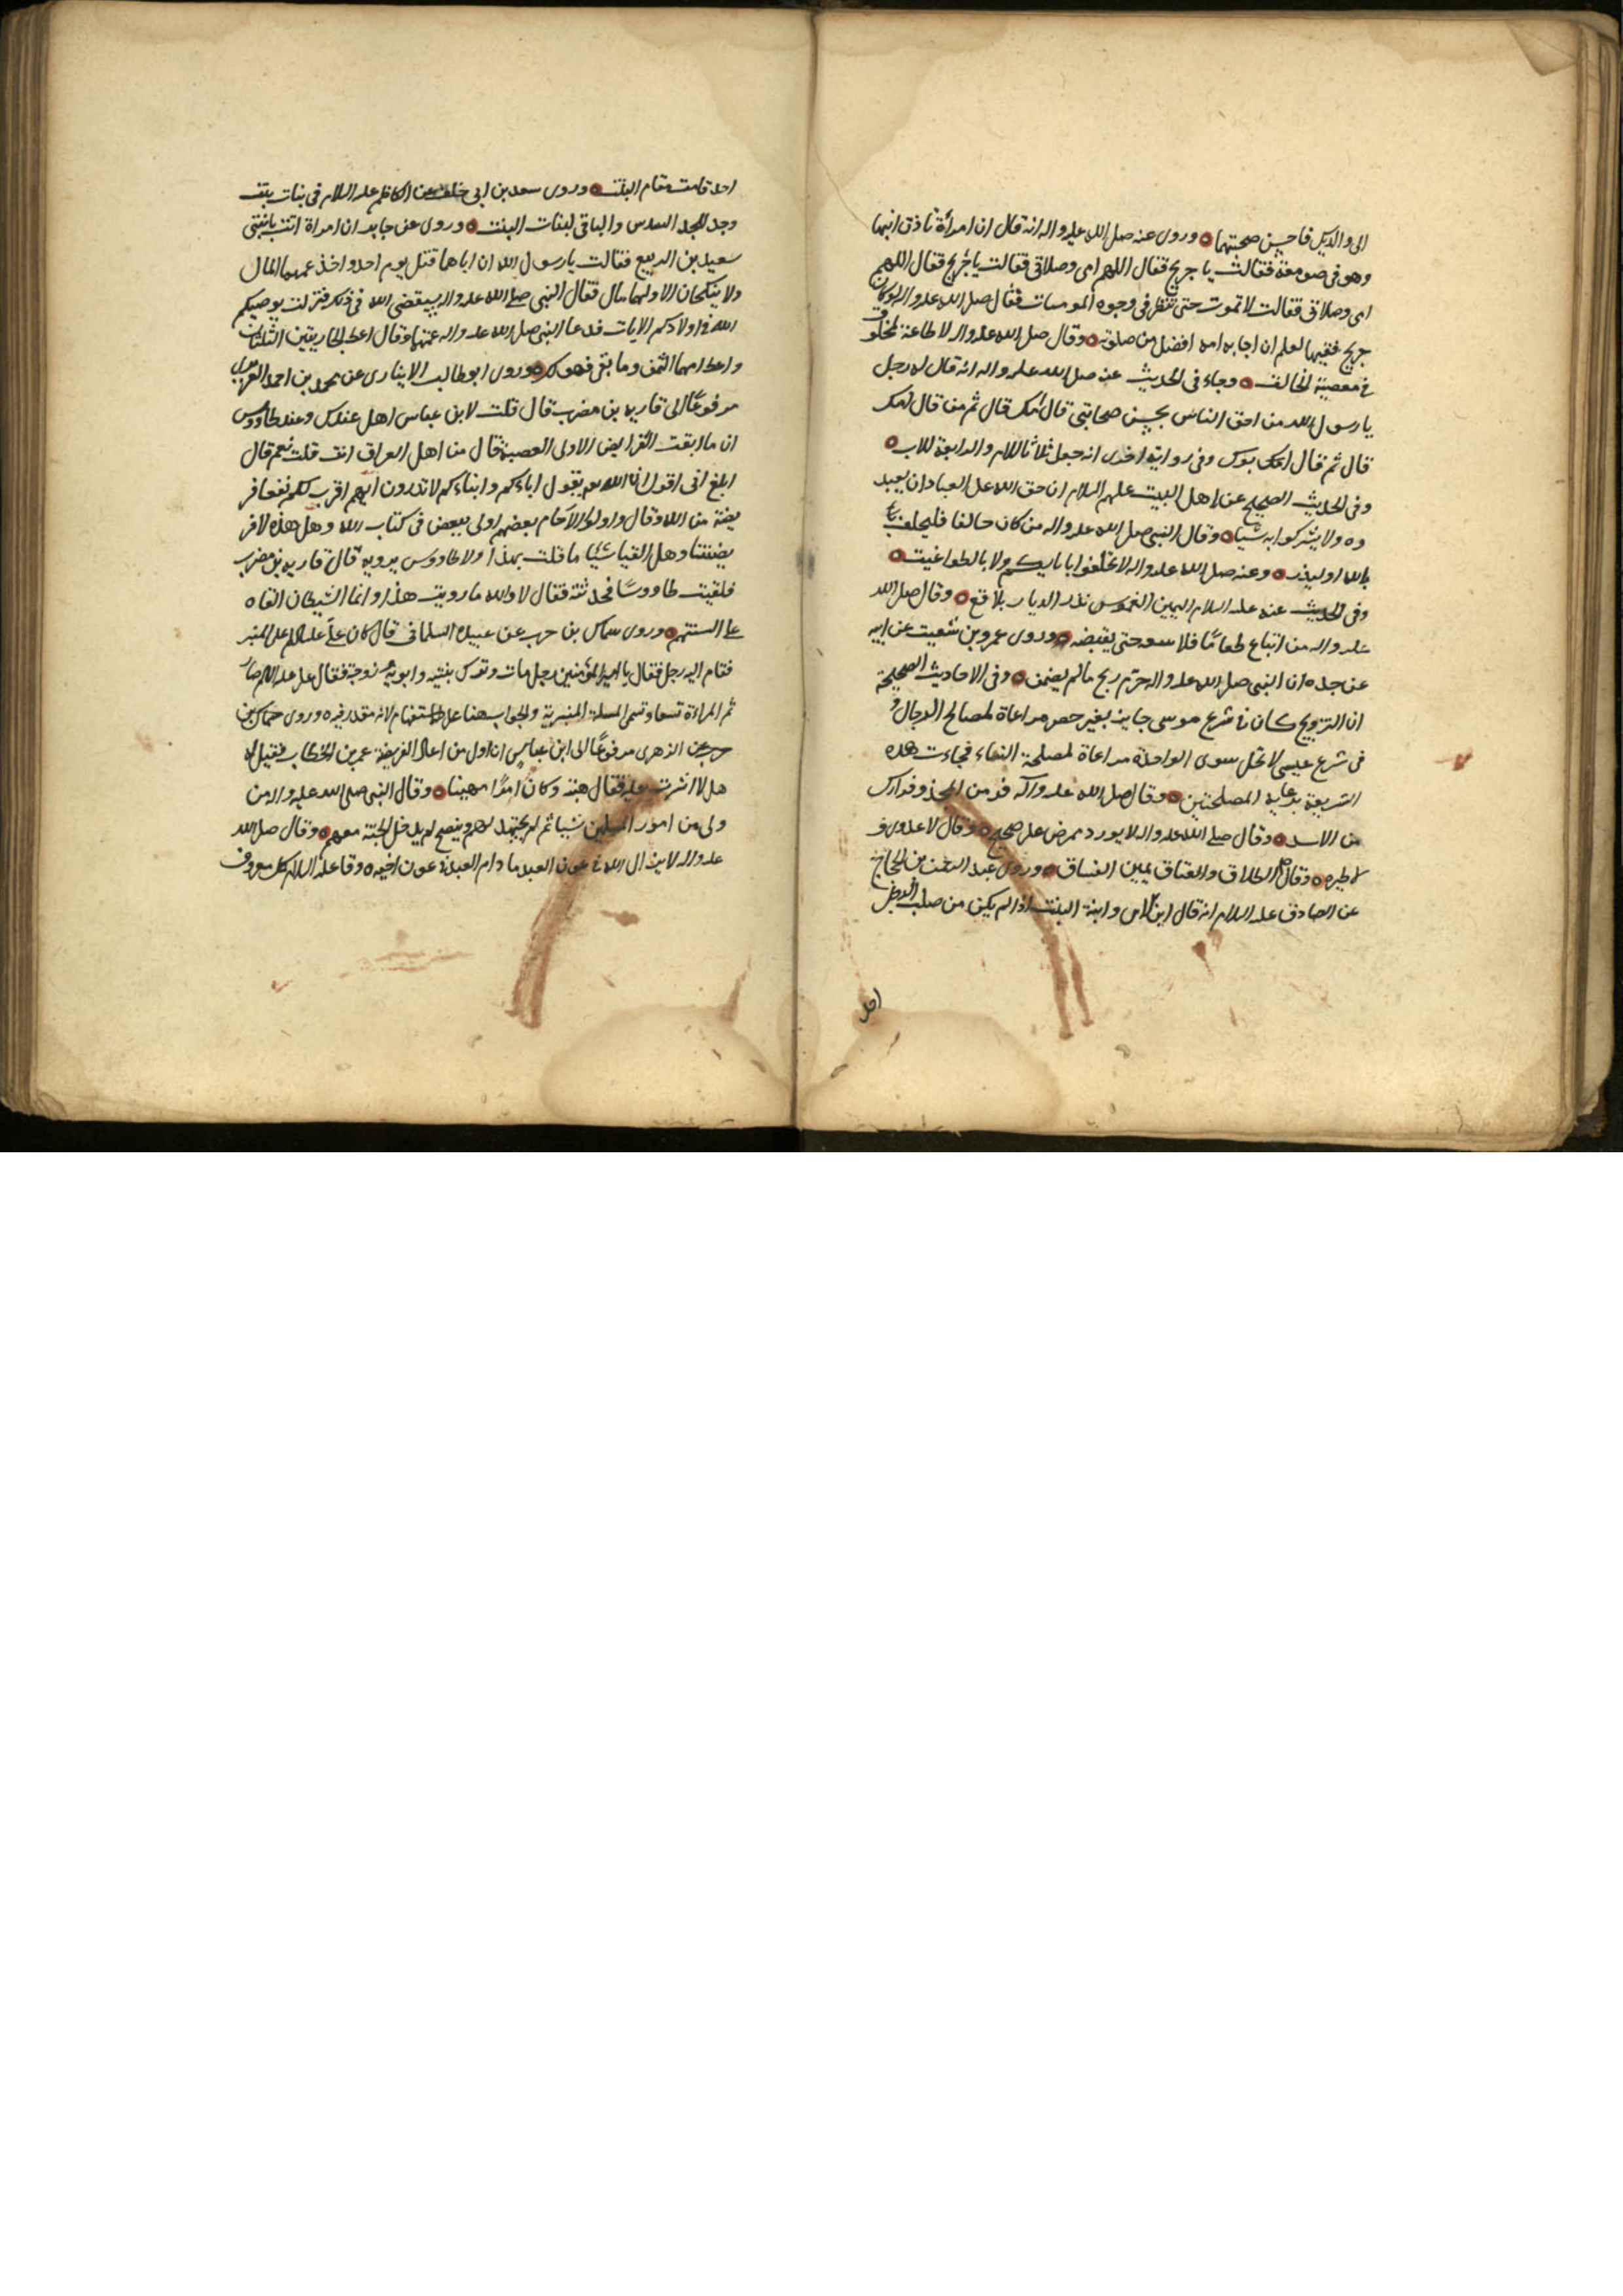 الى والديك فاحسن صحبتهما وروى عنه صلى الله عليه واله انه قال ان امرأة نادت ابنها
وهو فى صومعة فقالت يا جريج فقال اللهم امى وصلاتى فقالت يا جريج فقال اللهم
امى وصلاتى فقالت لا تموت حتى تنظر فى وجوه المومسات فقال صلى الله عليه واله لو كان
جريج فقيها لعلم ان اجابه امه افضل من صلوته وقال صلى الله عليه واله لا طاعة لمخلوق
فى معصية الخالق وجاء فى الحديث عنه صلى الله عليه واله انه قال له رجل
يا رسول الله من احق الناس بحسن صحابتى قال امك قال ثم من قال امك
قال ثم قال امك بوك وفى رواية اخرى انه جعل ثلاثا للام والرابعة للاب
وفى الحديث الصحيح عن اهل البيت عليهم السلام ان حق الله على العباد ان يعبد
وه ولا يشركوا به شيا وقال النبى صلى الله عليه واله من كان حالفا فليحلف
بالله او ليذر وعنه صلى الله عليه واله لا تحلفوا بابايكم ولا بالطواغيت
وفى الحديث عنه عليه السلام اليمين الغموس تذر الديار بلاقع وقال صلى الله
عليه واله من ابتاع طعامًا فلا يبعه حتى يقبضه وروى عمرو بن شعيب عن ابيه
عن جده ان النبى صلى الله عليه واله حرّم ربح مالم يضمن وفى الاحاديث الصحيحة
ان التزويج كان فى شرع موسى جايز بغير حصر مراعاة لمصالح الرجال و
فى شرع عيسى لا تحل سوى الواحدة مراعاة لمصلحة النساء فجاءت هذه
الشريعة برعاية المصلحتين وقال صلى الله عليه وآله فر من المجذوم فرارك
من الاسد وقال صلى الله عليه واله لا يورد ممرض على صحيح وقال لا عدوى و
لا طيره وقال الطلاق والعتاق يمين الفساق وروى عبد الرحمن بن الحجاج
عن الصادق عليه السلام انه قال ابن الابن وابنة البنت اذا لم يكن من صلب الرجل
احد
احد قامت مقام البنت وروى سعد بن ابى خلف عن الكاظم عليه السلام فى بنات بنت
وجد للجد السدس والباقى لبنات البنت وروى عن جابر ان امراة اتت بابنتى
سعيد بن الربيع فقالت يا رسول الله ان اباهما قتل يوم احد واخذ عمهما المال
ولا ينكحان الا ولهما مال فقال النبى صلى الله عليه واله سيقضى الله فى ذلك فنزلت يوصيكم
الله فى اولادكم الايات فدعا النبى صلى الله عليه واله عمهما وقال اعط الجاريتين الثلثان
واعط امهما الثمن وما بقى فهو لك وروى ابو طالب الانبارى عن محمد بن احمد
مرفوعًا الى قاربه بن مضرب قال قلت لابن عباس اهل عندك وعند طاووس
ان ما ابقت الفرايض الاولى العصبة قال من اهل العراق انت قلت نعم قال
ابلغ انى اقول ان الله يقول اباءكم وابناءكم لا تدرون ايهم اقرب لكم نفعا فر
يضة من الله وقال واولوا الارحام بعضهم اولى ببعض فى كتاب الله وهل هذه الا فر
يضتنا وهل القيا شئيا ما قلت بهذا ولا طاووس يرويه قال قاربه بن مضرب
فلقيت طاووسًا فحدثته فقال لا والله ما رويت هذا وانما الشيطان القاه
على السنتهم وروى سماك بن حرب عن عبيده السلمانى قال كان على عليه السلام على المنبر
فقام اليه رجل فقال يا امير المؤمنين رجل مات وترك بنتيه وابويه وزوجة فقال على عليه السلام صار
ثم المراءة تسعا وتسمى المسلة المنبرية والجواب هنا على الاستفهام لانه مقدر فيه وروى
حرب عن الزهرى مرفوعًا الى ابن عباس ان اول من اعال الفريضة عمر بن الخطاب فقيل له
هل لا اشرت عليه فقال هبته وكان امرًا مهيبا وقال النبى صلى الله عليه واله من
ولى من امور المسلمين شيا ثم لم يجتهد لهم وينصح لم يدخل الجنّة معهم وقال صلى الله
عليه واله لا يزال الله فى عون العبد ما دام العبد فى عون اخيه وقا عليه السلام كل معروف